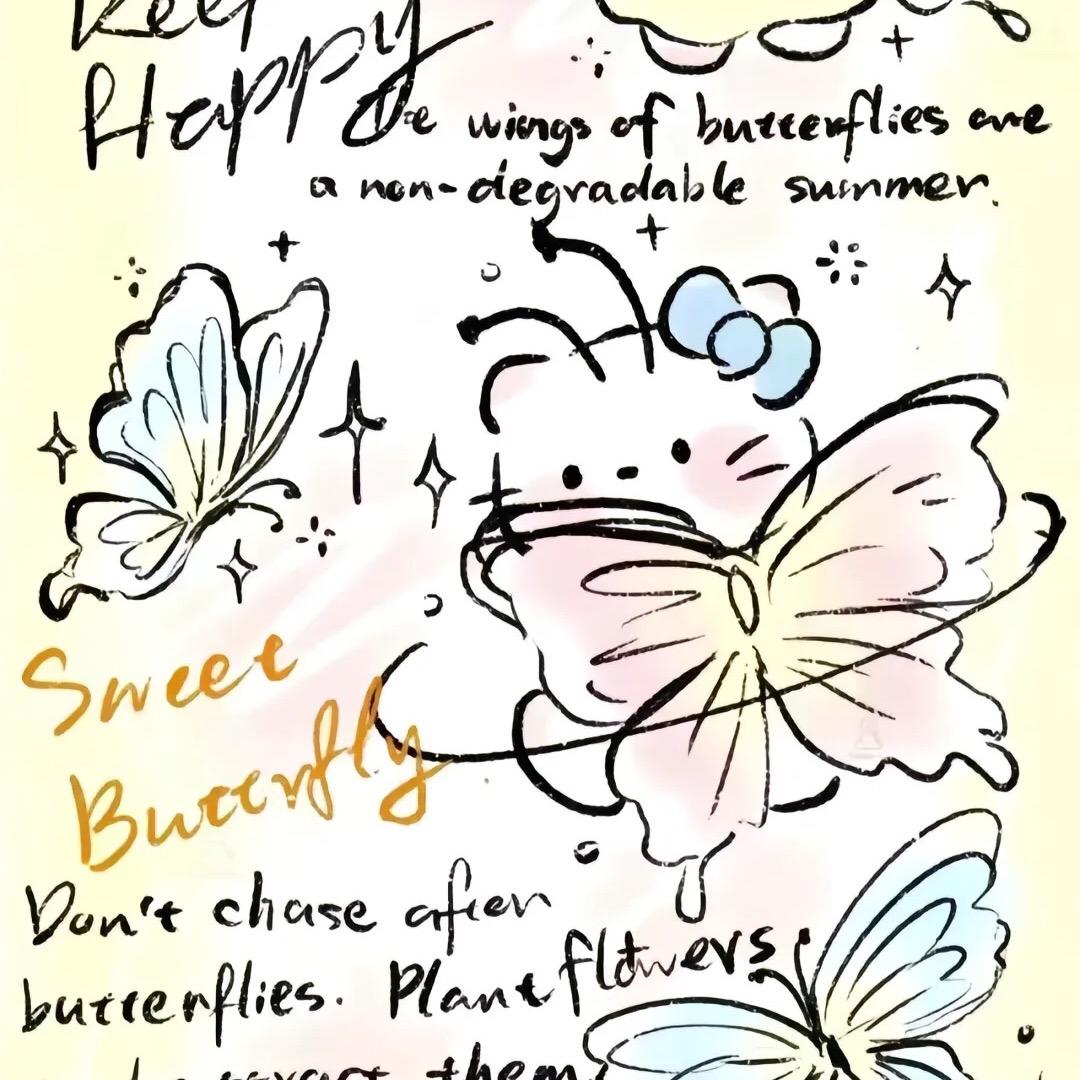 Keep
Happy
The wings of butterflies are
a non-degradable summer.
Sweet
Butterfly
Don't chase after
butterflies. Plant flowers
attract them